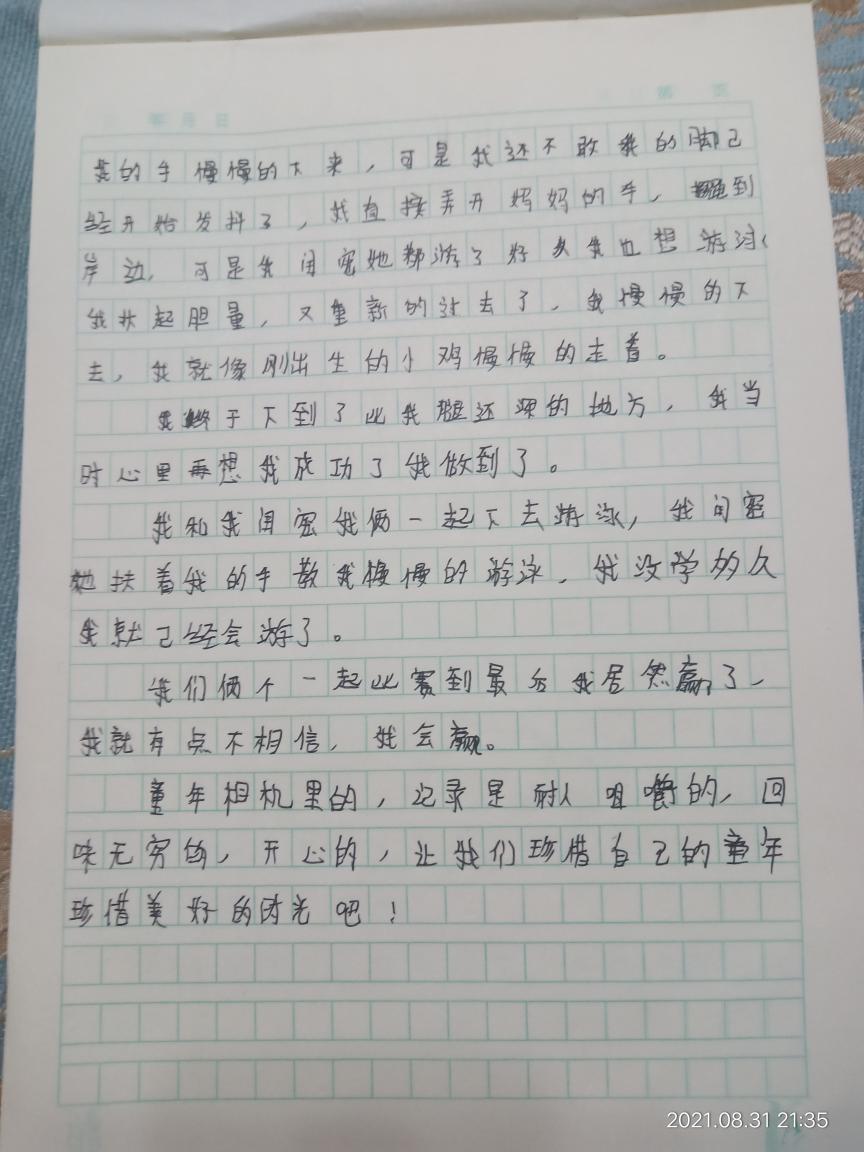 年 月 日 第 页
我的手慢慢的下来，可是我还不敢我的脚已
经开始发抖了，我直接弄开妈妈的手，跑到
岸边，可是我闺密她都游了好久我也想游泳，
我扶起胆量，又重新的过去了，我慢慢的下
去，我就像刚出生的小鸡慢慢的走着。
我终于下到了比我腿还深的地方，我当
时心里再想我成功了我做到了。
我和我闺密我俩一起下去游泳，我闺密
她扶着我的手教我慢慢的游泳，我没学多久
我就已经会游了。
我们俩个一起比赛到最后我居然赢了，
我就有点不相信，我会赢。
童年相机里的，记录是耐人咀嚼的，回
味无穷的，开心的，让我们珍惜自己的童年
珍惜美好的时光吧！
2021.08.31 21:35